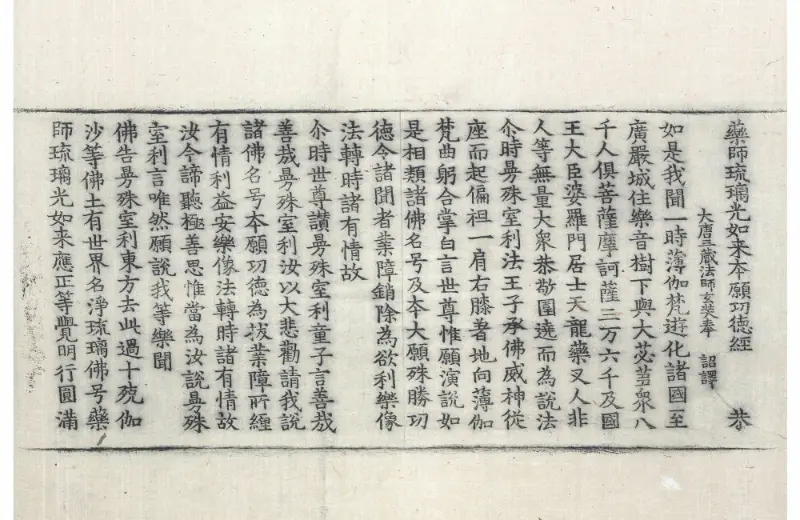 藥師琉璃光如来夲願㓛德經 恭
大唐三蔵法師玄奘奉 詔譯
如是我聞一時薄伽梵遊化諸國至
廣嚴城住樂音樹下與大苾蒭衆八
千人俱菩薩摩訶薩三万六千及國
王大臣婆羅門居士天龍藥叉人非
人等無量大衆恭敬圍遶而為說法
尒時曼殊室利法王子承佛威神從
座而起偏袒一肩右膝著地向薄伽
梵曲躬合掌白言世尊惟願演說如
是相類諸佛名号及夲大願殊勝㓛
德令諸聞者業障銷除為欲利樂像
法轉時諸有情故
尒時世尊讃曼殊室利童子言善哉
善哉曼殊室利汝以大悲勸請我說
諸佛名号夲願㓛德為拔業障所纏
有情利益安樂像法轉時諸有情故
汝今諦聽極善思惟當為汝說曼殊
室利言唯然願說我等樂聞
佛告曼殊室利東方去此過十殑伽
沙等佛土有世界名淨琉璃佛号藥
師琉璃光如来應正等覺明行圓滿